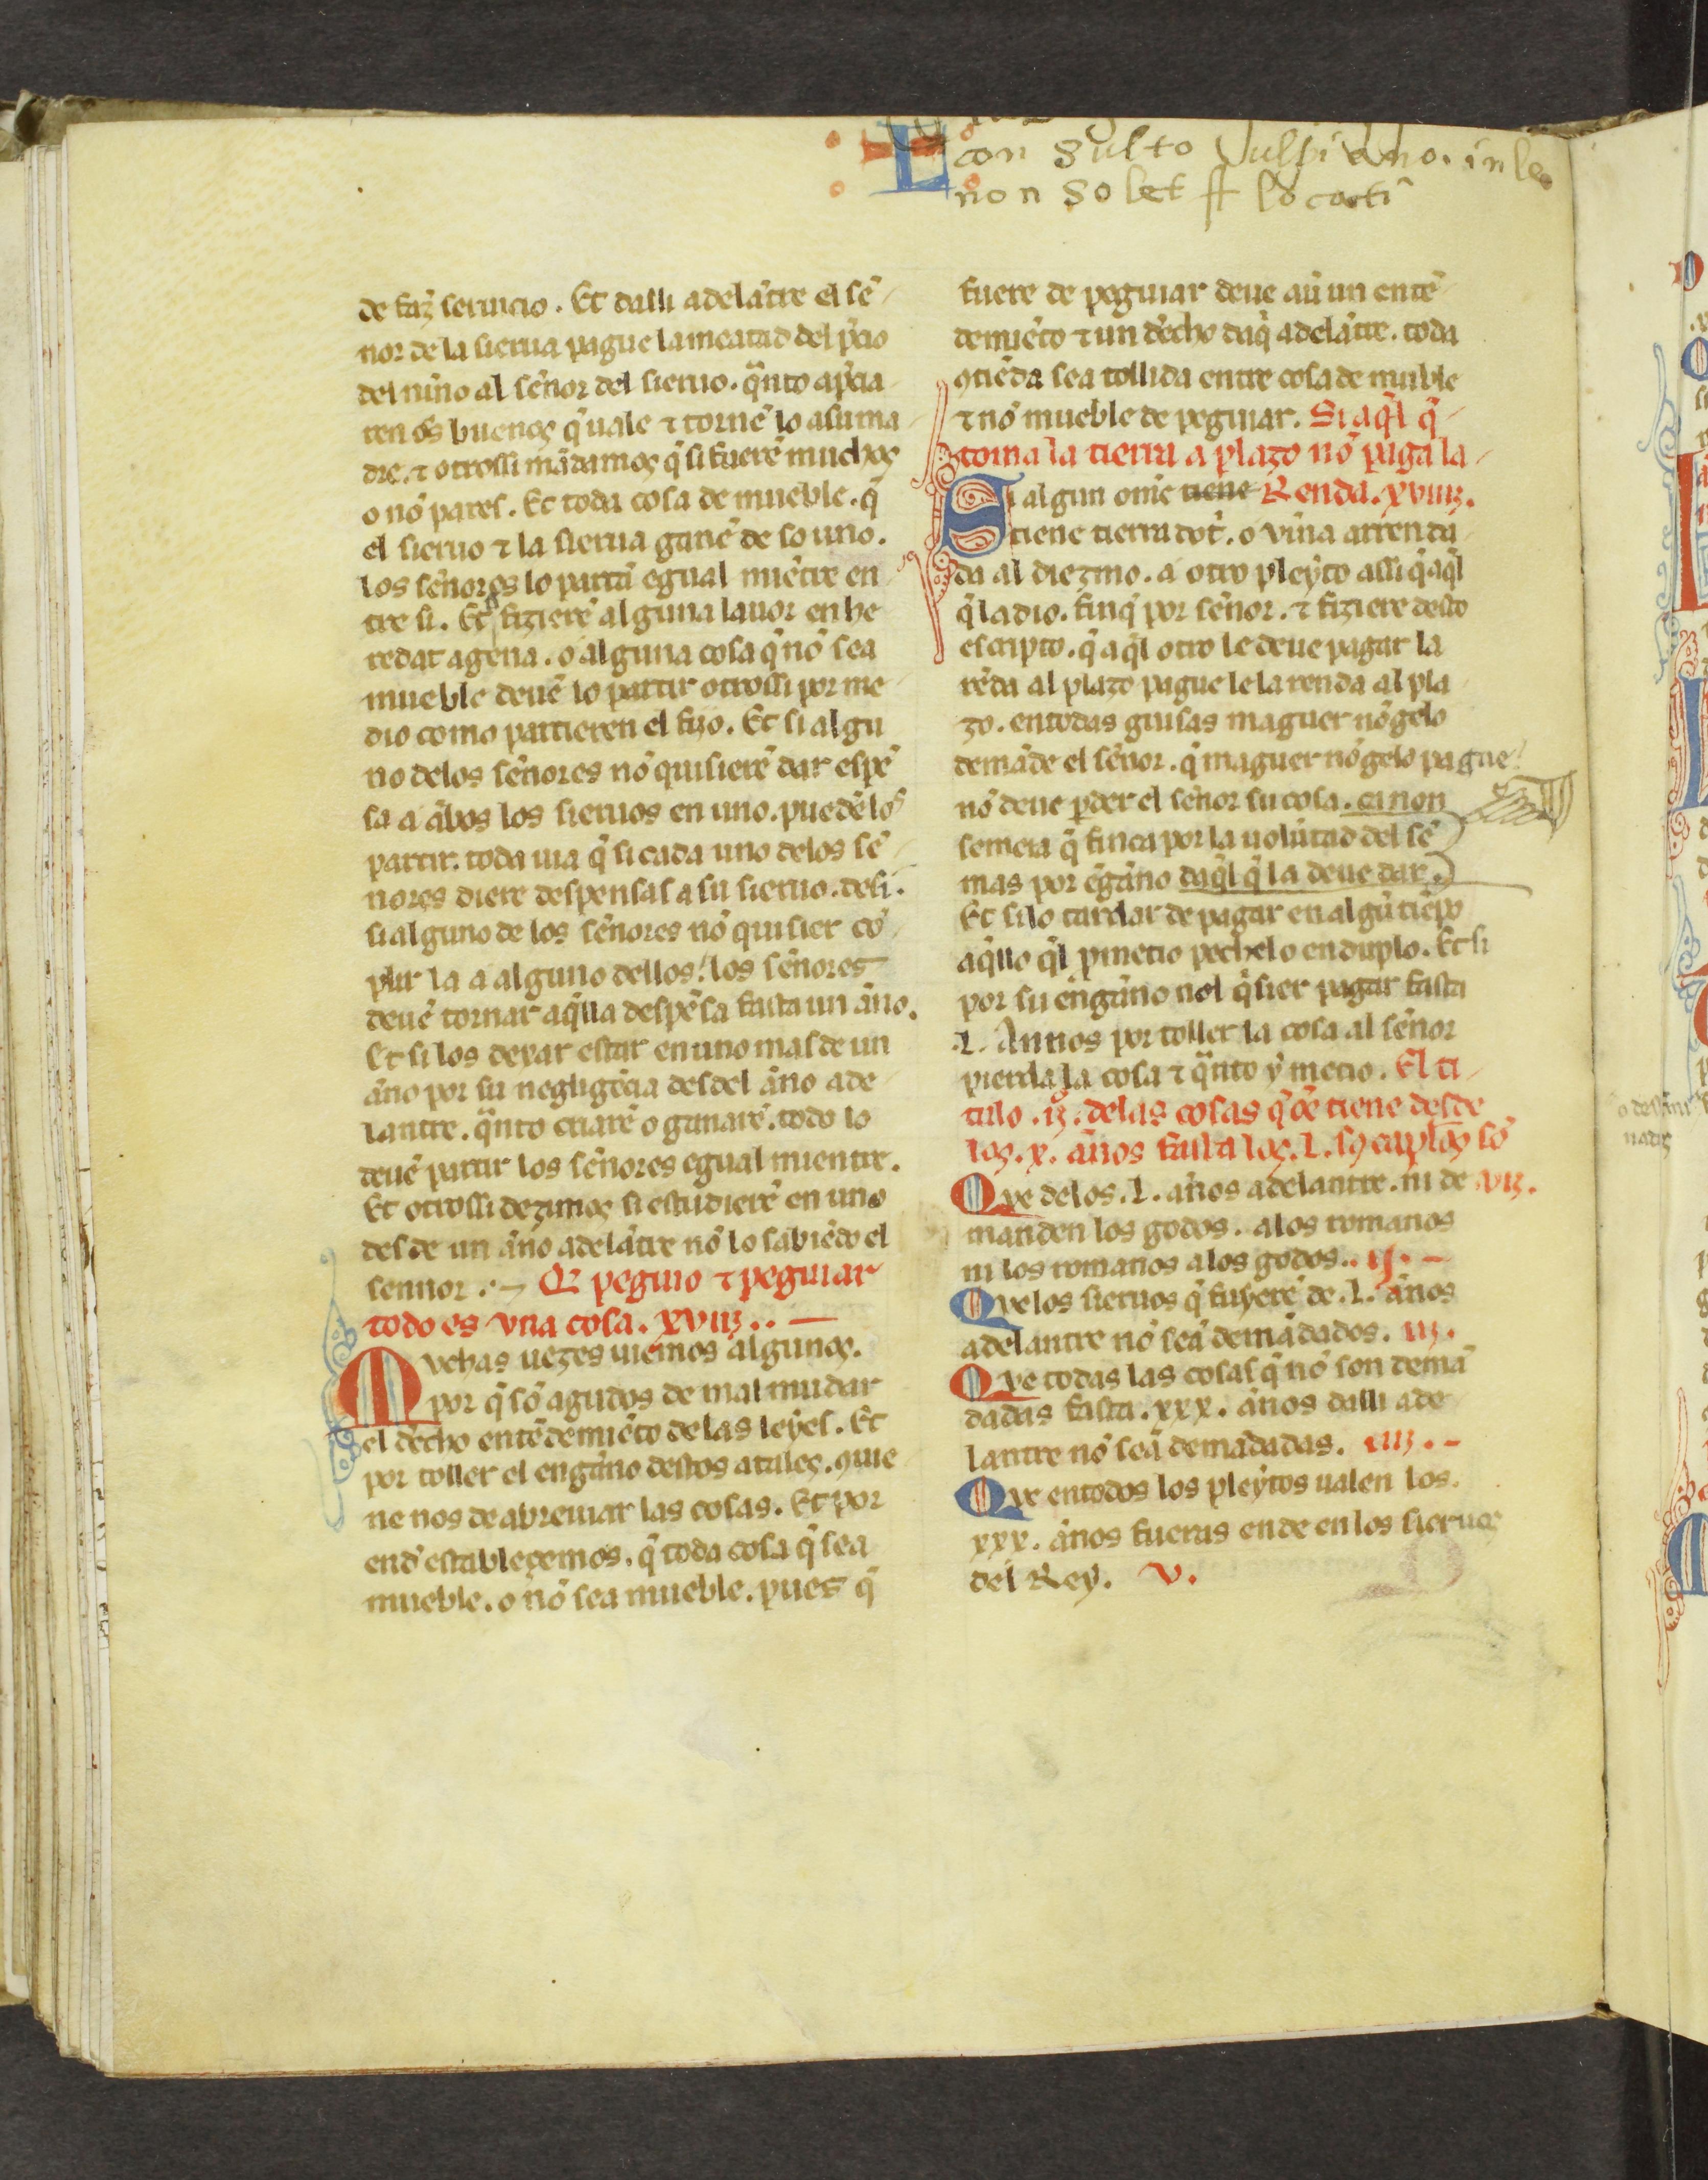 L
con sulto Vulpiano. in le
non solet ff locati
de faz seruicio. Et dalli adelātre el sē
nor de la sierua pague la meatad del p̄cio
del nīno al sēnor del sieruo. q̄nto ap̄cia
ren ōs buenos q̄ uale ⁊ tornē lo a su ma
dre. ⁊ otrossi mādamos q̄ si fuerē muchos
o nō pares. Et toda cosa de mueble. q̄
el sieruo ⁊ la sierua ganē de so uno.
los sēnores lo partā egual miētre en
tre si. Et fizierē alguna lauor en he
redat agena. o alguna cosa q̄ nō sea
mueble deuē lo partir otrossi por me
dio como partieren el fijo. Et si algu
no delos sēnores nō quisierē dar espē
sa a ābos los sieruos en uno. puedē los
partir. toda uia q̄ si cada uno delos sē
nores diere despensas a su sieruo. de si.
si alguno de los sēnores nō quisier cō
plir la a alguno dellos. los sēnores
deuē tornar aq̄lla despēsa fasta un āno.
Et si los dexar estar en uno mas de un
āno por su negligēcia desdel āno ade
lantre. q̄nto criarē o ganarē. todo lo
deuē partir los sēnores egual mientre.
Et otrossi dezimos si estudierē en uno
desde un āno adelātre nō lo sabiēdo el
sennor. Q̄ peguio ⁊ peguiar
todo es vna cosa. xviij..
Mvchas uezes uiemos algunos.
por q̄ sō agudos de mal mudar
el d̄echo entēdemiēto de las leyes. Et
por toller el engāno destos atales. ꝯuie
ne nos de abreuiar las cosas. Et por
end̄ establecemos. q̄ toda cosa q̄ sea
mueble. o nō sea mueble. pues q̄
fuere de peguiar deue aū un entē
demiēto ⁊ un d̄echo daq̄ adelātre. toda
ꝯtiēda sea tollida entre cosa de muible
⁊ nō mueble de peguiar. Si aq̄l q̄
toma la tierra a plazo nō paga la
Si algun ome tiene Renda. xviiij.
tiene tierra dot̄. o vīna arrenda
da al diezmo. a otro pleyto assi q̄ aq̄l
q̄ la dio. finq̄ por sēnor. ⁊ fiziere desto
escripto. q̄ aq̄l otro le deue pagar la
rēda al plazo pague le la renda al pla
zo. en todas guisas maguer nō gelo
demāde el sēnor. q̄ maguer nō gelo pague
nō deue p̄der el sēnor su cosa. ca non
semeia q̄ finca por la uolūtad del sē
mas por ēgāno daq̄l q̄ la deue dar.
Et si lo tardar de pagar en algū tiēpo
aq̄llo q̄l p̄metio pechelo en duplo. Et si
por su ēngāno nol q̄sier pagar fasta
.L. Annos por toller la cosa al sēnor
pierda la cosa ⁊ q̄nto p̄metio. El ti
tulo .ij. delas cosas q̄ ōe tiene desde
los .x. ānos fasta los .L.
Qve delos .L. ānos adelantre. ni de vij.
manden los godos. a los romanos
ni los romanos a los godos.. ij.
Qve los sieruos q̄ fuyerē de .L. ānos
adelantre nō seā demādados. iij.
Qve todas las cosas q̄ nō son demā
dadas fasta .xxx. ānos dalli ade
lantre nō seā demādadas. iiij.
Qve en todos los pleytos ualen los.
xxx. ānos fueras ende en los sieruos
del Rey. V.